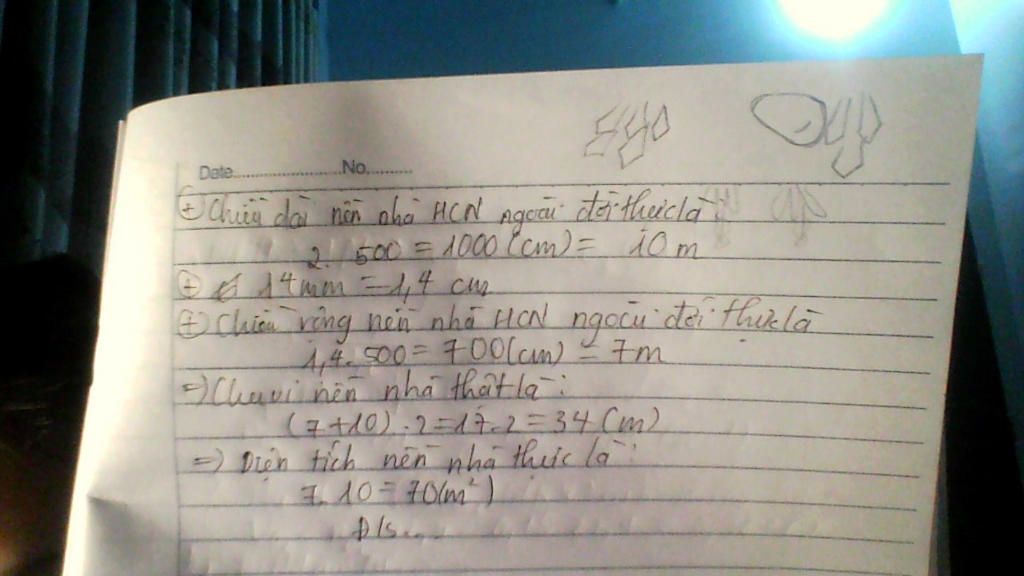 Date........................No..........
(+) Chiều dài nền nhà HCN ngoài đời thực là
2. 500 = 1000 (cm) = 10 m
(+) 14mm = 1,4 cm
(+) Chiều rộng nền nhà HCN ngoài đời thực là
1,4. 500 = 700 (cm) = 7m
=) Chu vi nền nhà thật là:
(7+10) . 2 = 17. 2 = 34 (m)
=) Diện tích nền nhà thực là:
7. 10 = 70 (m²)
Đ/s...